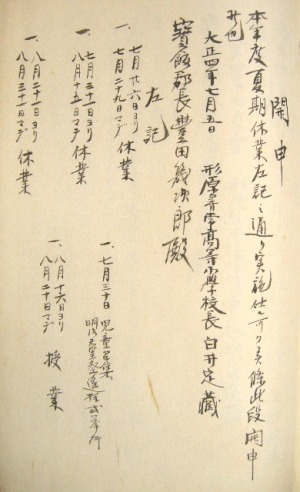 開申
本年度夏期休業左記ノ通リ実施仕ル可ク候條此段開申
候也
大正四年七月五日
形原尋常高等小學校長 白井定藏
寳飯郡長 豊田義次郎殿
左記
一、七月廿六日ヨリ
七月二十九日マデ 休業
一、七月三十一日ヨリ
八月十五日マデ 休業
一、八月二十一日ヨリ
八月三十一日マデ 休業
一、七月三十日 児童召集
明治天皇遥拝式挙行
一、八月十六日ヨリ
八月二十日マデ 授業